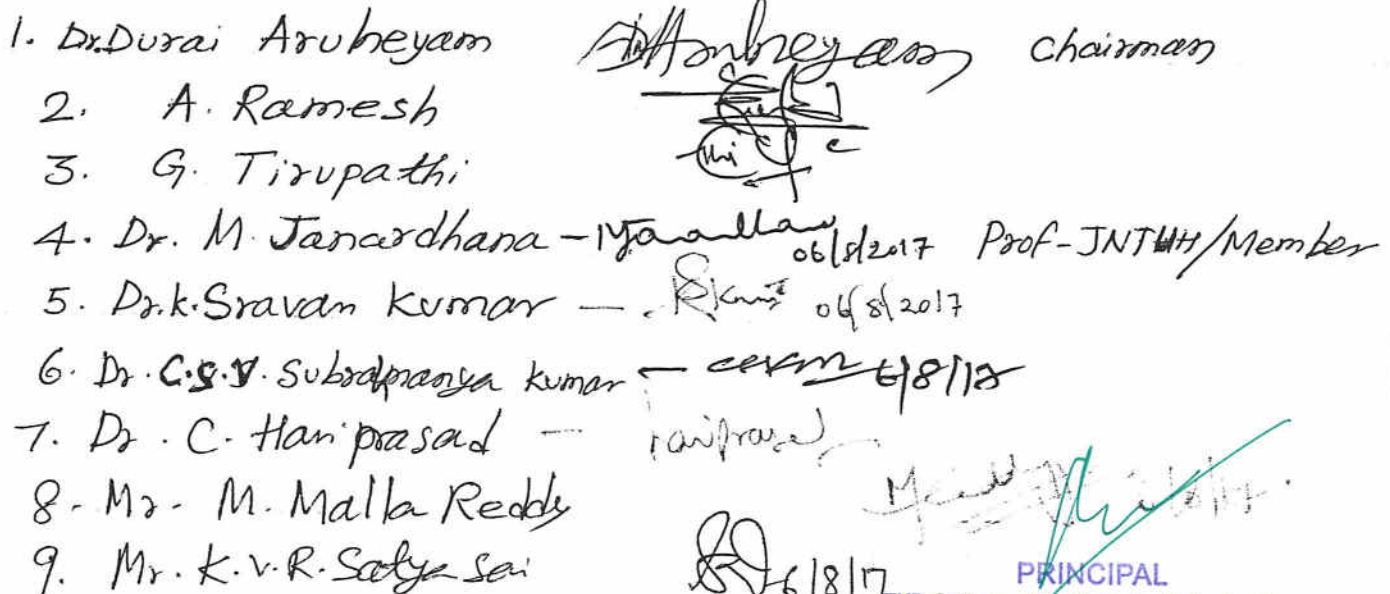 1. Dr.Durai Arubeyam Arubeyam Chairman
2. A. Ramesh
3. G. Tirupathi
4. Dr. M. Janardhana - 06/8/2017 Prof-JNTUH/Member
5. Dr.K.Sravan Kumar - SKumar 06/8/2017
6. Dr. C.S.V. Subramanya Kumar - 6/8/17
7. Dr. C. Hariprasad - Hariprasad
8. Mr. M. Malla Reddy
9. Mr. K.V.R. Satya Sai 6/8/17
PRINCIPAL